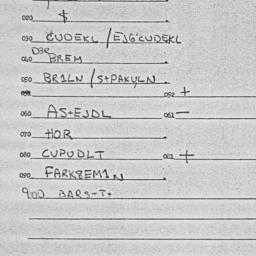 020 $
030 CUDEKL / EJG CUDEKL
D3R
040 BREM
050 BR1LN / S+PAKULN
052 +
060 AS+EJDL 062 -
070 HOR
080 CUPUDLT 083 +
090 FARK8EM1N
900 BARS+T+